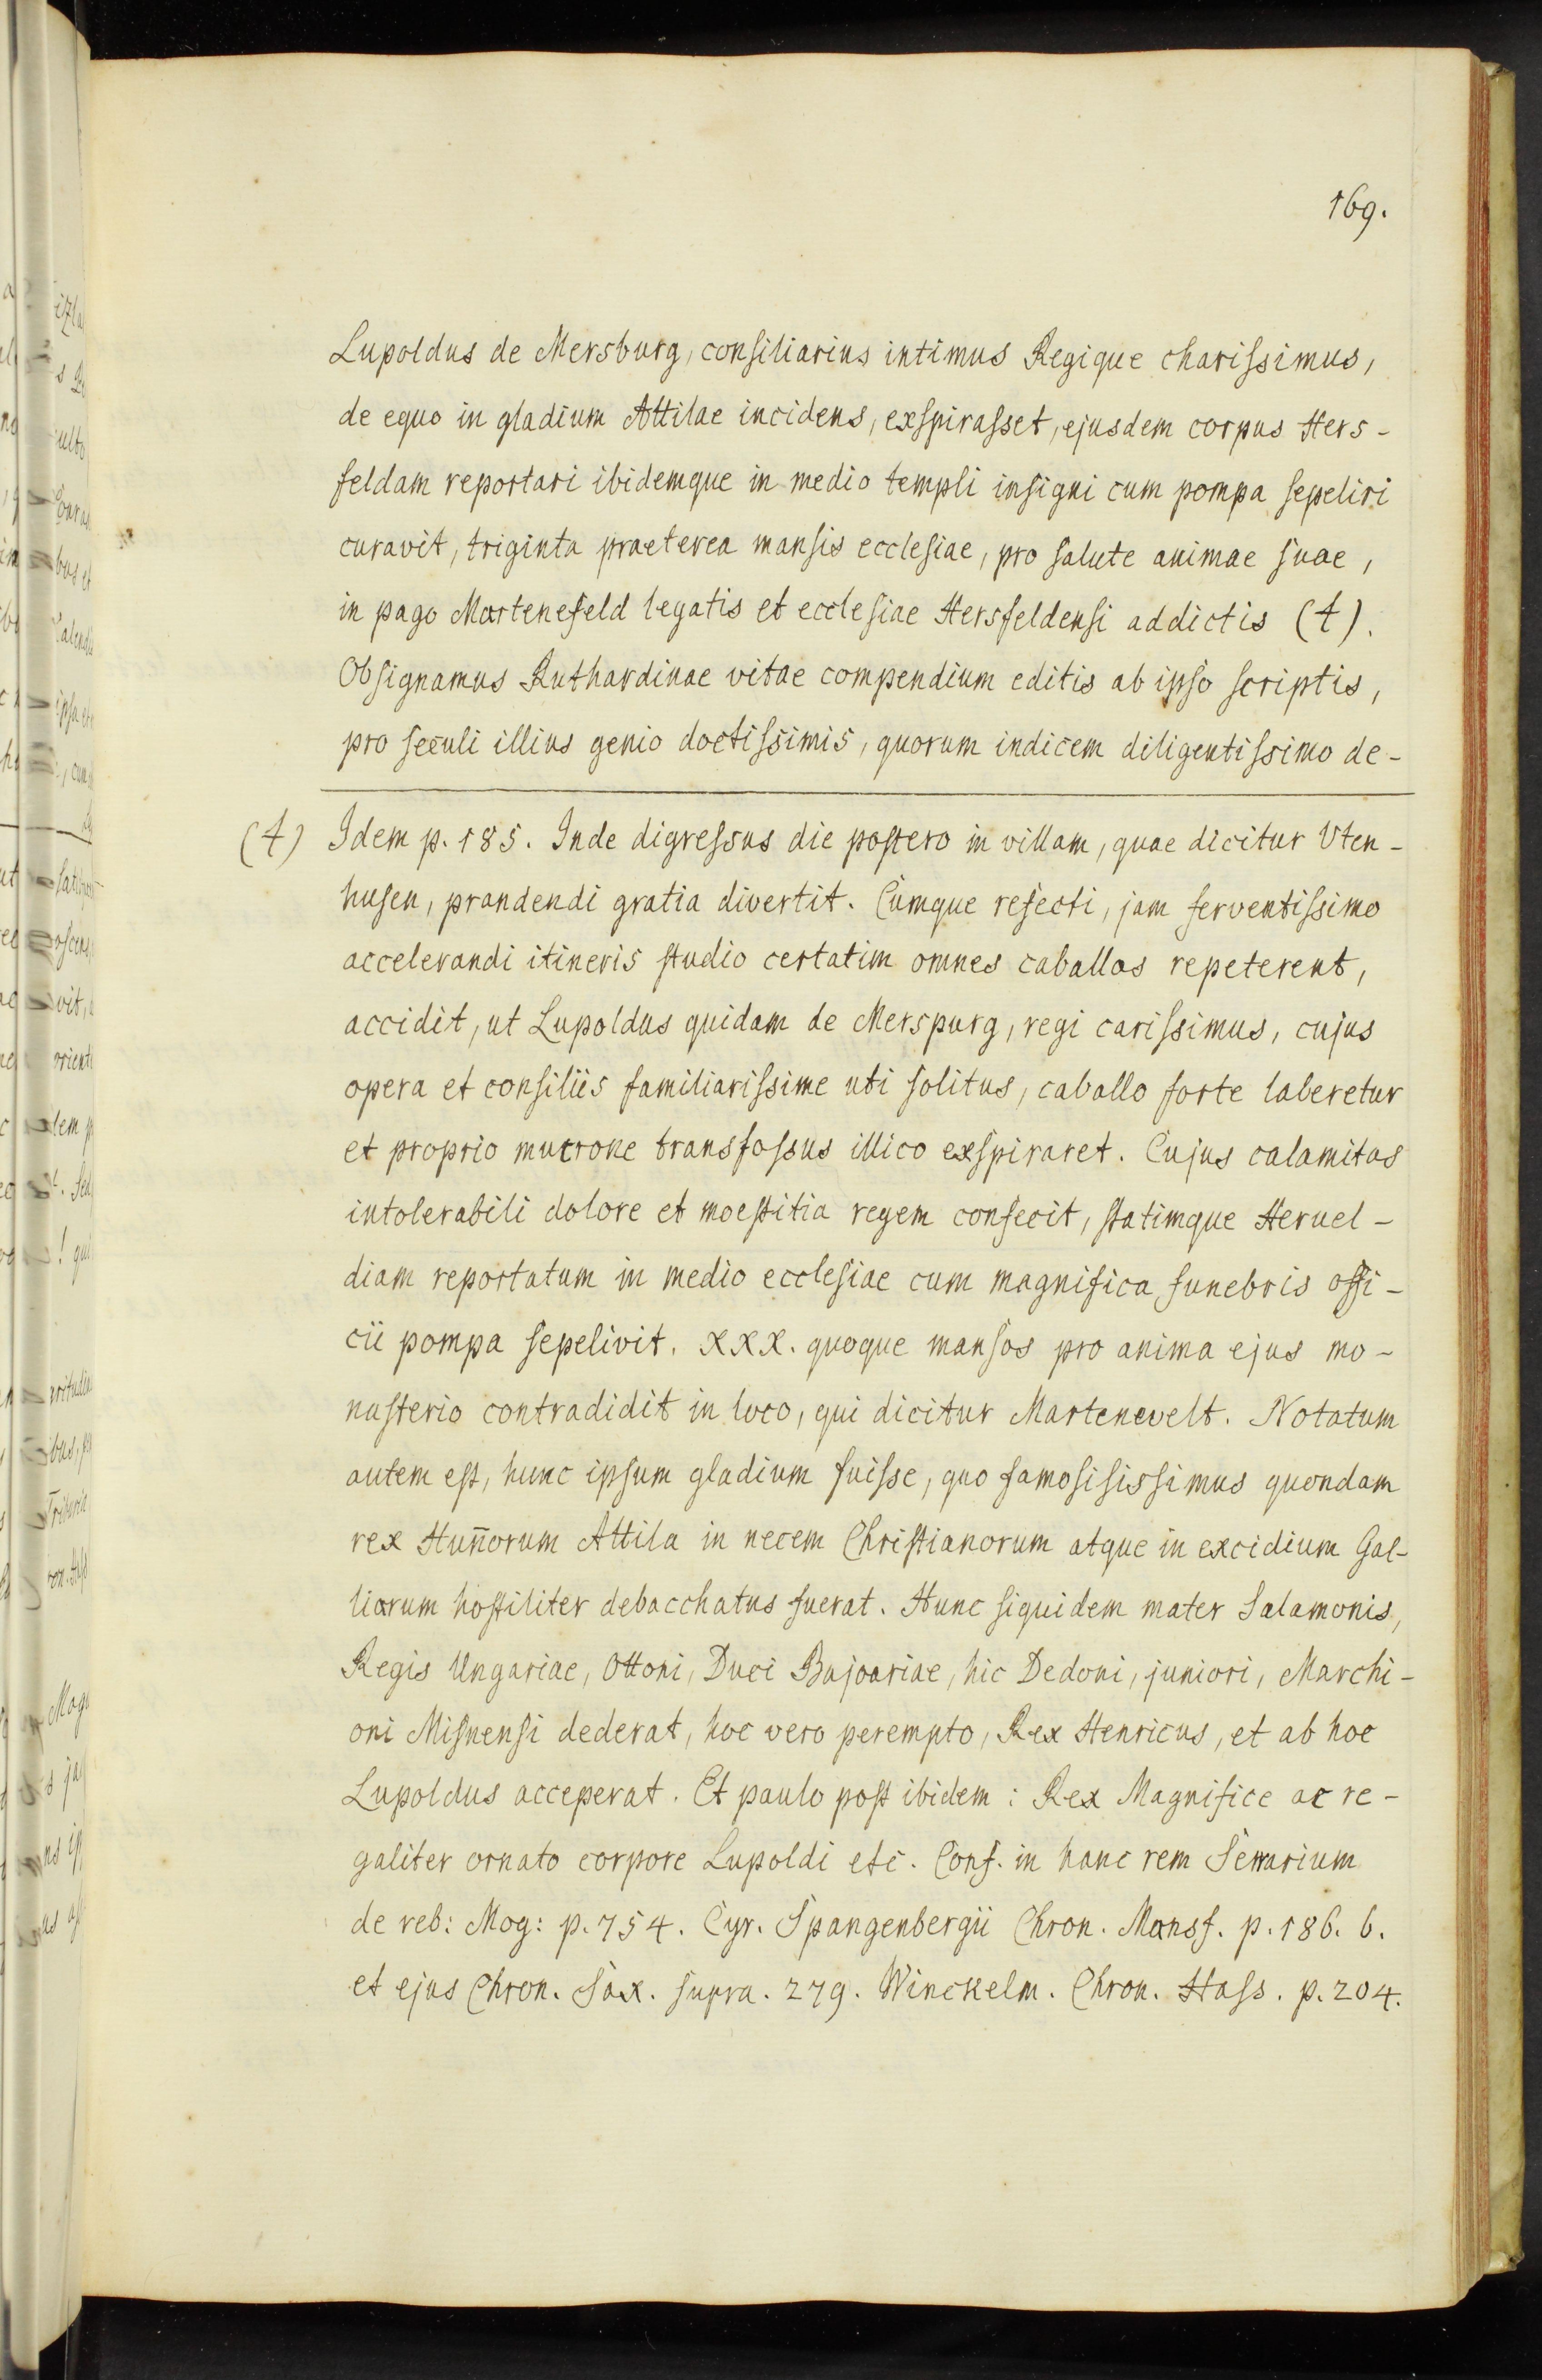 169.
Lupoldus de Mersburg, consiliarius intimus Regique charissimus,
de equo in gladium Attilae incidens, exspirasset, ejusdem corpus Hers-
feldam reportari ibidemque in medio templi insigni cum pompa sepeliri
curavit, triginta praeterea mansis ecclesiae, pro salute animae suae,
in pago Martenefeld legatis et ecclesiae Hersfeldensi addictis (t).
Obsignamus Ruthardinae vitae compendium editis ab ipso scriptis,
pro seculi illius genio doctissimis, quorum indicem diligentissimo de-
(t) Idem p. 185. Inde digressus die postero in villam, quae dicitur Uten-
husen, prandendi gratia divertit. Cumque refecti, jam ferventissimo
accelerandi itineris studio certatim omnes caballos repeterent,
accidit, ut Lupoldus quidam de Merspurg, regi carissimus, cujus
opera et consiliis familiarissime uti solitus, caballo forte laberetur
et proprio mucrone transfossus illico exspiraret. Cujus calamitas
intolerabili dolore et moestitia regem confecit, statimque Heruel-
diam reportatum in medio ecclesiae cum magnifica funebris offi-
cii pompa sepelivit. XXX. quoque mansos pro anima ejus mo-
nasterio contradidit in loco, qui dicitur Martenevelt. Notatum
autem est, hunc ipsum gladium fuisse, quo famosisissimus quondam
rex Hun̄orum Attila in necem Christianorum atque in excidium Gal-
liarum hostiliter debacchatus fuerat. Hunc siquidem mater Salamonis,
Regis Ungariae, Ottoni, Duci Bajoariae, hic Dedoni, juniori, Marchi-
oni Misnensi dederat, hoc vero perempto, Rex Henricus, et ab hoc
Lupoldus acceperat. Et paulo post ibidem: Rex Magnifice ac re-
galiter ornato corpore Lupoldi etc. Conf. in hanc rem Serrarium
de reb: Mog: p. 754. Cyr. Spangenbergii Chron. Mansf. p. 186. b.
et ejus Chron. Sax. supra. 279. Winckelm. Chron. Hass. p. 204.